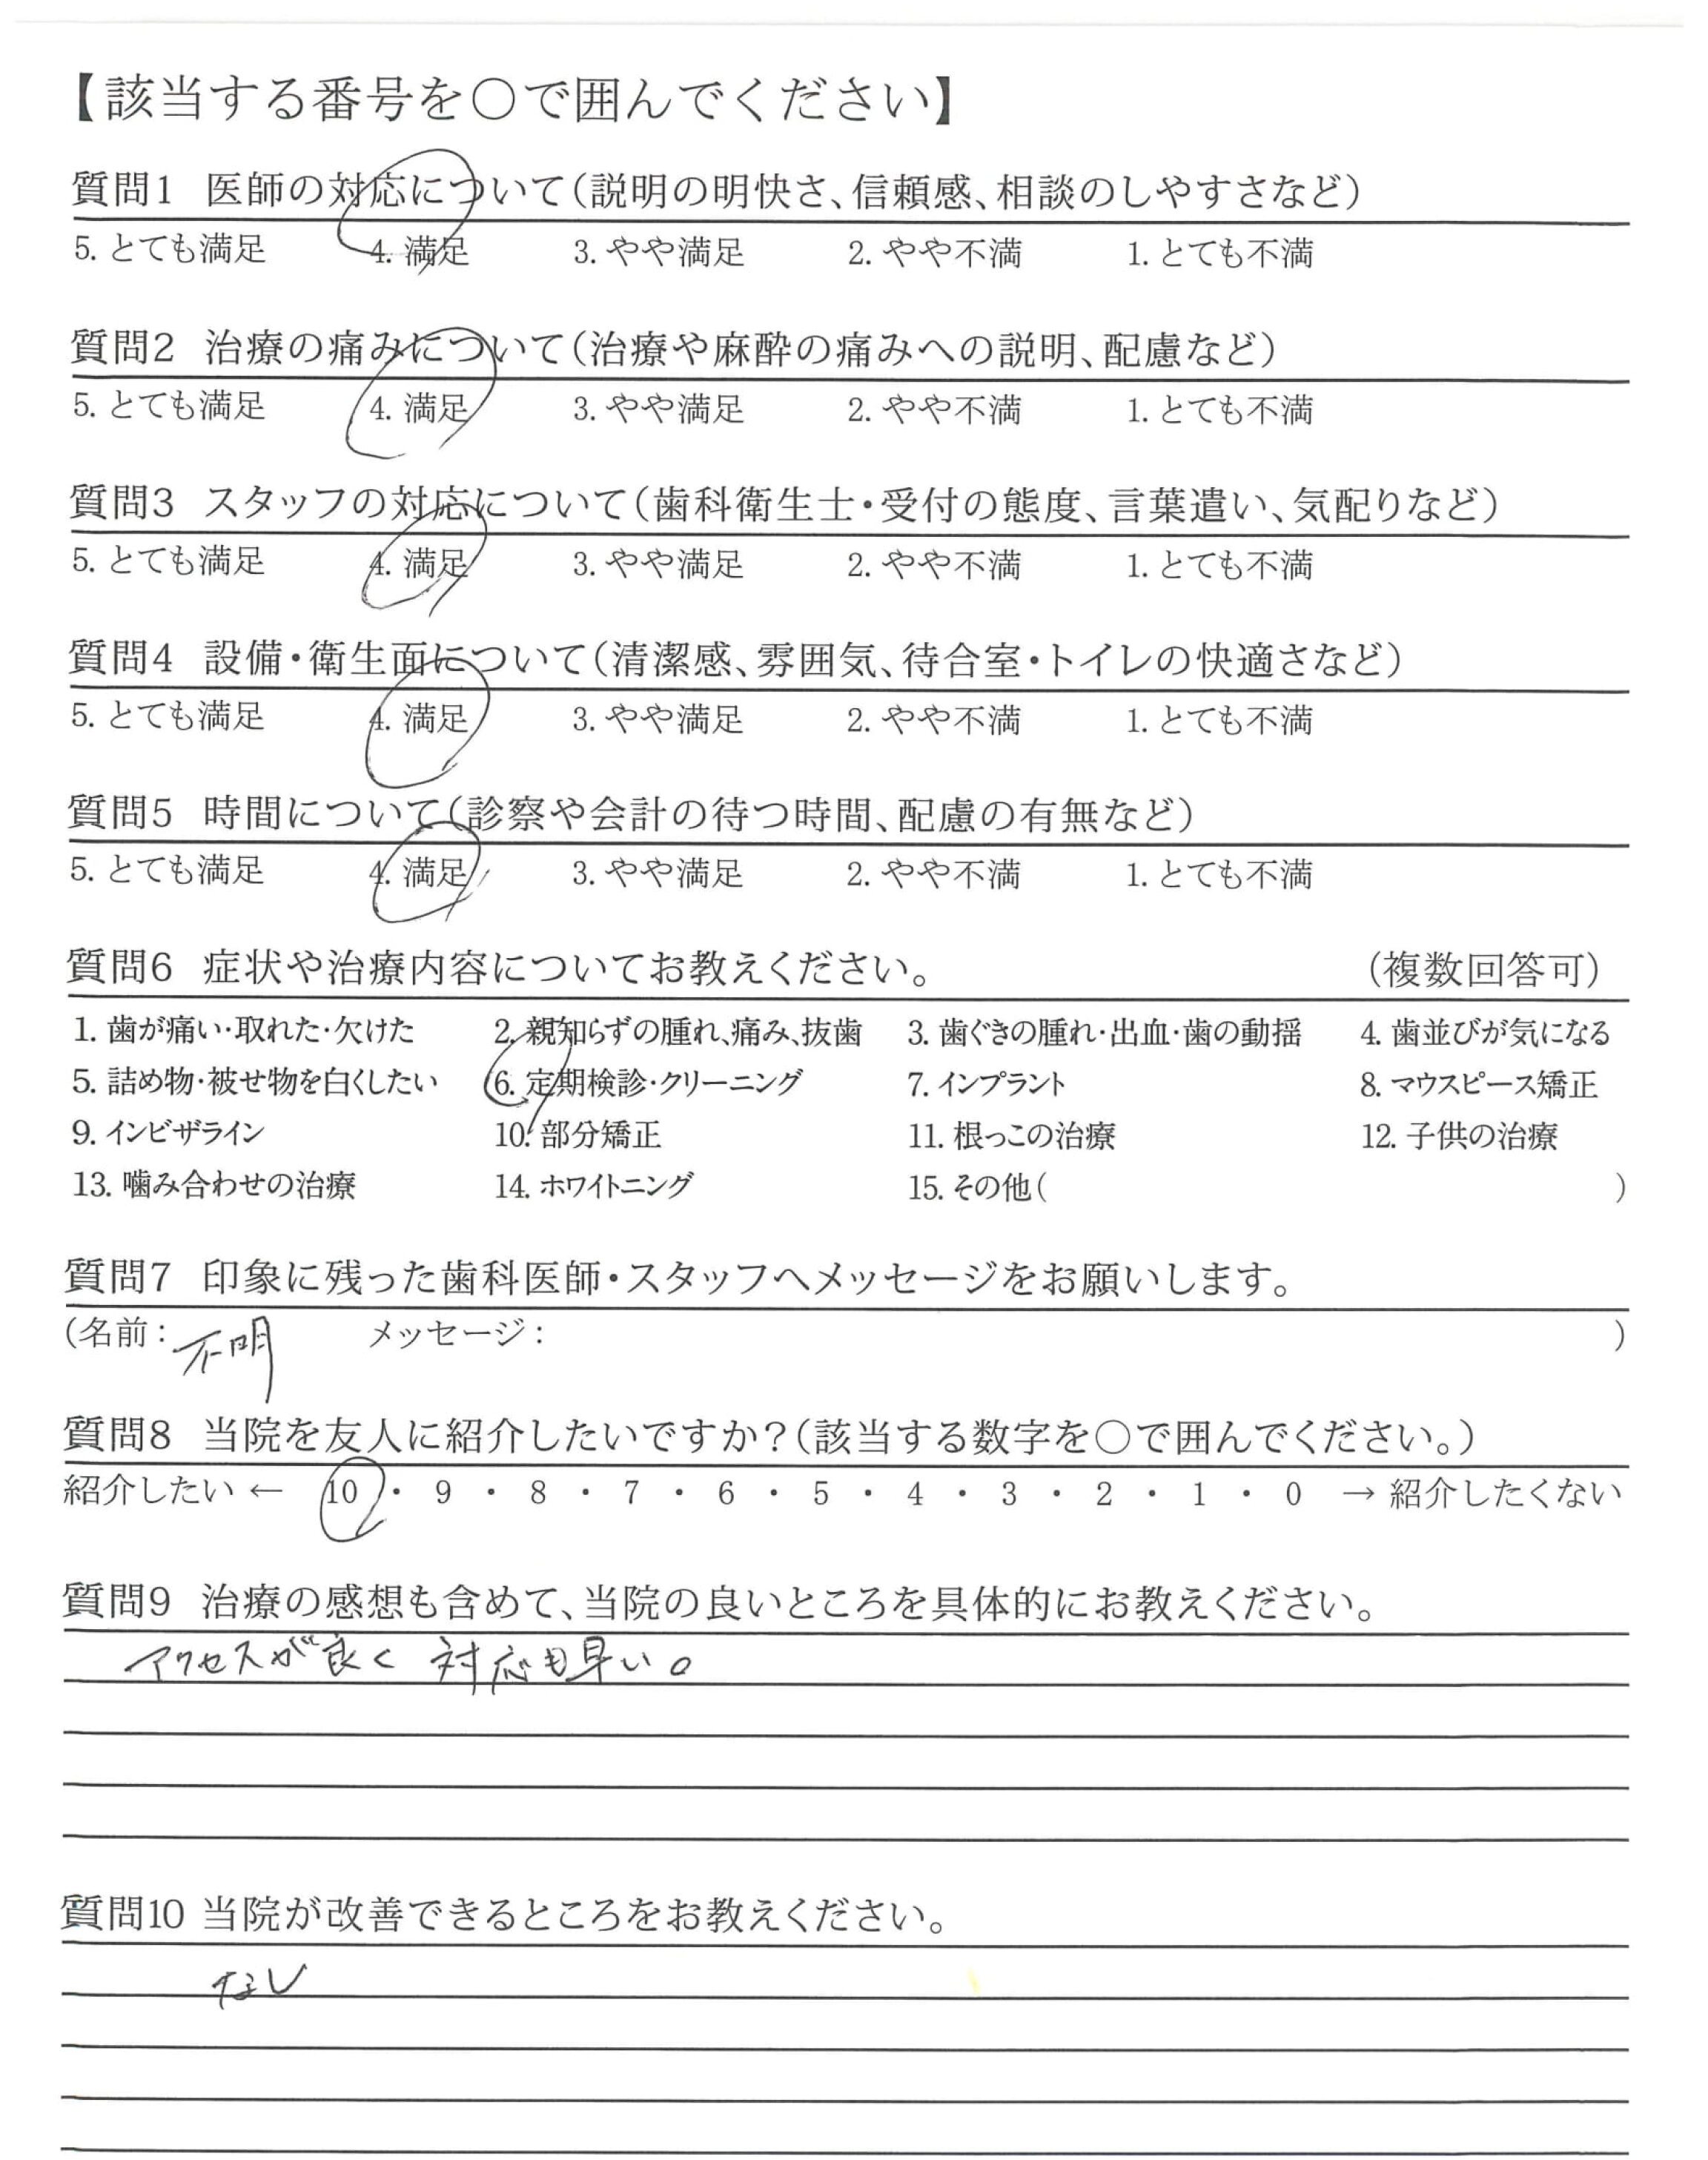 【該当する番号を○で囲んでください】
質問1 医師の対応について(説明の明快さ、信頼感、相談のしやすさなど)
5. とても満足 4. 満足 3. やや満足 2. やや不満 1. とても不満
質問2 治療の痛みについて(治療や麻酔の痛みへの説明、配慮など)
5. とても満足 4. 満足 3. やや満足 2. やや不満 1. とても不満
質問3 スタッフの対応について(歯科衛生士・受付の態度、言葉遣い、気配りなど)
5. とても満足 4. 満足 3. やや満足 2. やや不満 1. とても不満
質問4 設備・衛生面について(清潔感、雰囲気、待合室・トイレの快適さなど)
5. とても満足 4. 満足 3. やや満足 2. やや不満 1. とても不満
質問5 時間について(診察や会計の待つ時間、配慮の有無など)
5. とても満足 4. 満足 3. やや満足 2. やや不満 1. とても不満
質問6 症状や治療内容についてお教えください。 (複数回答可)
1. 歯が痛い・取れた・欠けた 2. 親知らずの腫れ、痛み、抜歯 3. 歯ぐきの腫れ・出血・歯の動揺 4. 歯並びが気になる
5. 詰め物・被せ物を白くしたい 6. 定期検診・クリーニング 7. インプラント 8. マウスピース矯正
9. インビザライン 10. 部分矯正 11. 根っこの治療 12. 子供の治療
13. 噛み合わせの治療 14. ホワイトニング 15. その他( )
質問7 印象に残った歯科医師・スタッフへメッセージをお願いします。
(名前: 不明 メッセージ: )
質問8 当院を友人に紹介したいですか?(該当する数字を○で囲んでください。)
紹介したい ← 10 ・ 9 ・ 8 ・ 7 ・ 6 ・ 5 ・ 4 ・ 3 ・ 2 ・ 1 ・ 0 → 紹介したくない
質問9 治療の感想も含めて、当院の良いところを具体的にお教えください。
アクセスが良く 対応も早い。
質問10 当院が改善できるところをお教えください。
なし